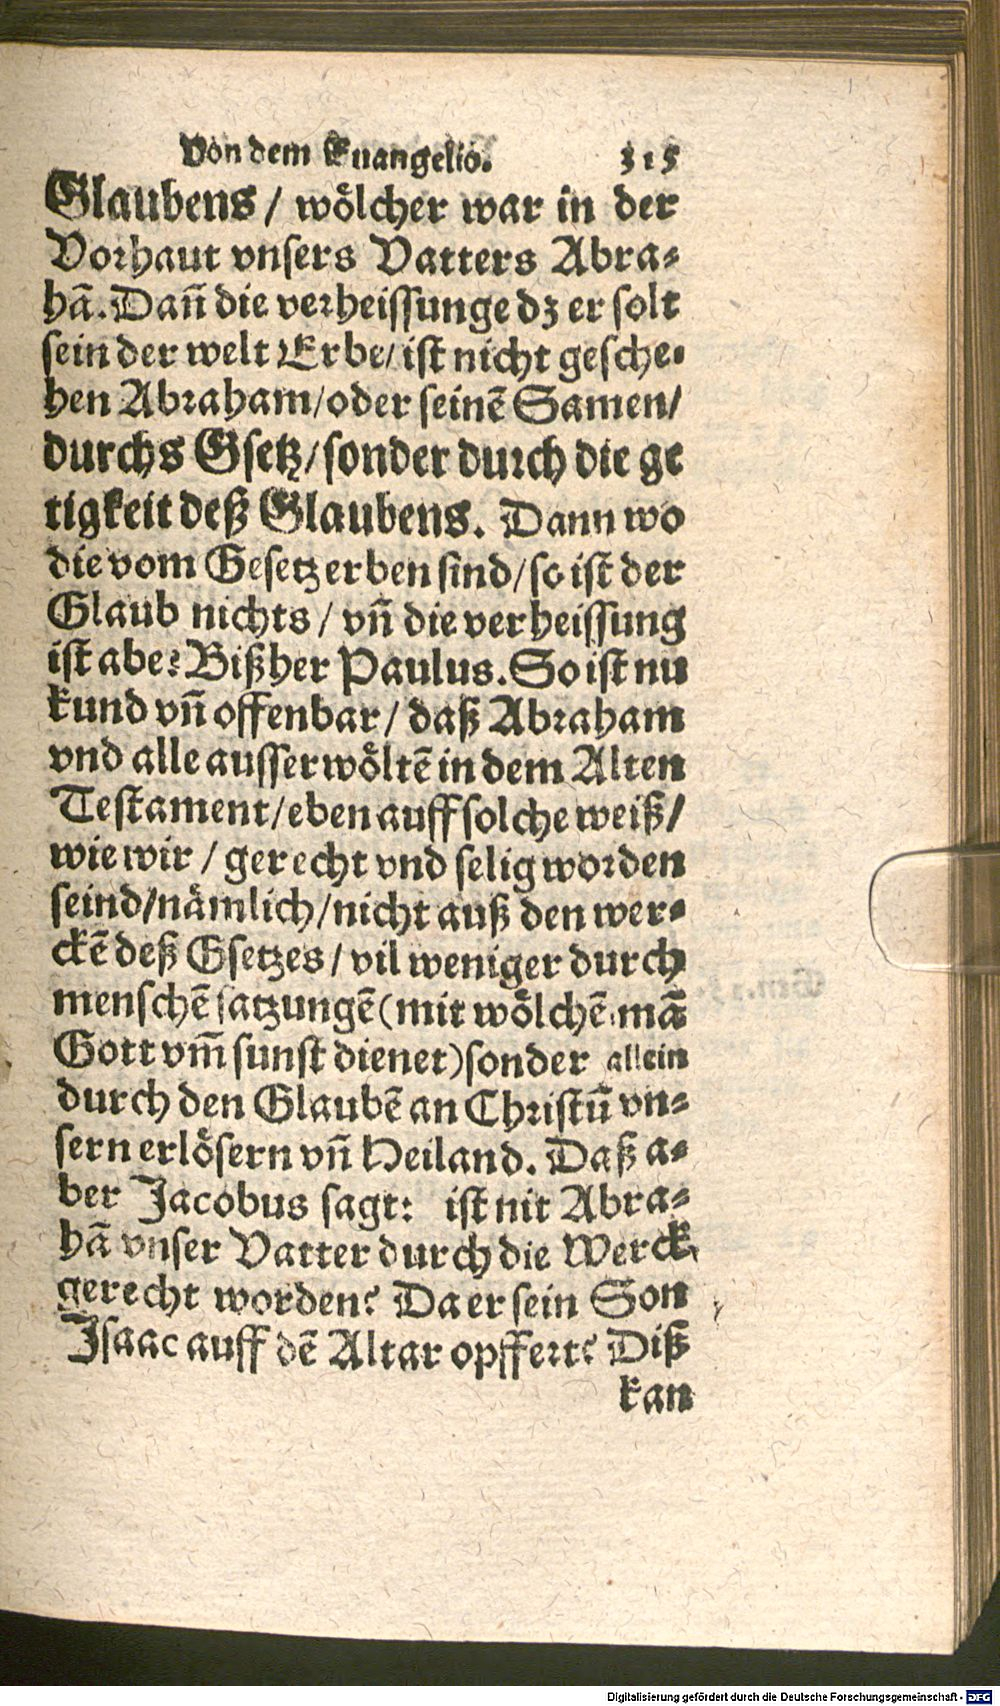 Von dem Euangelio. 315
Glaubens / wölcher war in der
Vorhaut vnsers Vatters Abra-
hã. Dañ die verheissunge dz er solt
sein der welt Erbe / ist nicht gesche-
hen Abraham / oder seinẽ Samen /
durchs Gsetz / sonder durch die ge
tigkeit deß Glaubens. Dann wo
die vom Gesetz erben sind / so ist der
Glaub nichts / vñ die verheissung
ist abe: Bißher Paulus. So ist nu
kund vñ offenbar / daß Abraham
vnd alle ausserwöltẽ in dem Alten
Testament / eben auff solche weiß /
wie wir / gerecht vnd selig worden
seind / nämlich / nicht auß den wer-
ckẽ deß Gsetzes / vil weniger durch
menschẽ satzungẽ (mit wölchẽ mã
Gott vm̃ sunst dienet) sonder allein
durch den Glaubẽ an Christũ vn-
sern erlösern vñ Heiland. Daß a-
ber Jacobus sagt: ist nit Abra-
hã vnser Vatter durch die Werck
gerecht worden? Da er sein Son
Isaac auff dẽ Altar opffert? Diß
kan
Digitalisierung gefördert durch die Deutsche Forschungsgemeinschaft - DFG